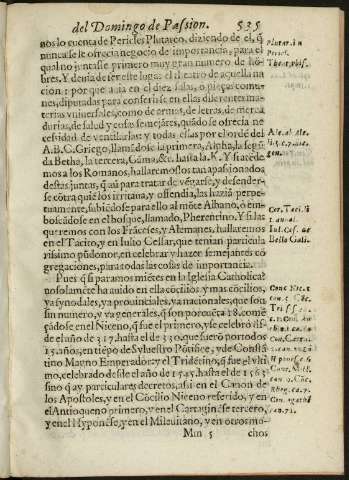 del Domingo de Passion. 535
nos lo cuenta de Pericles Plutarco, diziendo de el, q̃
nunca se le ofrecia negocio de importancia, para el
qual no juntasse primero muy gran numero de hõ
bres. Y denia de ser este lugar el teatro de aquella na
cion: porque auia en el diez salas, o pieças comu-
nes, diputadas para conferirse en ellas diferentes ma-
terias vniuersales, como de armas, de letras, de merca
durias, de salud y cosas semejãtes, quãdo se ofrecia ne
cessidad de ventilarlas: y todas ellas por el ordẽ del
A.B.C. Griego, llamãdose la primera, Alpha, la segũ
da Betha, la tercera, Gãma, &c. hasta la. K. Y si atẽde
mos a los Romanos, hallaremoslos tan apassionados
destas juntas, q̃ aũ para tratar de vẽgarse, y defender-
se cõtra quiẽ los irritaua, y offendia, las hazia perpe-
tuamente, subiẽdose para ello al mõte Albano, o em-
boscãdose en el bosque, llamado, Pherentino. Y si las
queremos con los Frãceses, y Alemanes, hallaremos
en el Tacito, y en Iulio Cesar, que tenian particula
rissimo pũdonor, en celebrar y hazer semejãtes cõ
gregaciones, para todas las cosas de importancia.
Pues q̃ si paramos miẽtes en la Iglesia Catholica?
no solamẽte ha auido en ella cõcilios, y mas cõcilios,
ya synodales, ya prouinciales, ya nacionales, que son
sin numero, y ya generales, q̃ son por cuẽta 18. comẽ
çãdose en el Niceno, q̃ fue el primero, y se celebrò des
de el año de 317. hasta el de 330. que fuerõ por todos
15. años, en tiẽpo de Syluestro Põtifice, y de Constã
tino Magno Emperador: y el Tridẽtino, q̃ fue el vlti
mo, celebrado desde el año de 1545. hasta el de 1563.
sino q̃ ay particulares decretos, assi en el Canon de
los Apostoles, y en el Cõcilio Niceno referido, y en
el Antioqueno primero, y en el Cartaginẽse tercero,
y en el Hyponẽse, y en el Mileuitano, y en otros mo-
Mm 5 chos
Plutar. in
Pericl.
Cor. Taci. li
Iul. Ces. de
Bello Gali.
Conc. Nic.